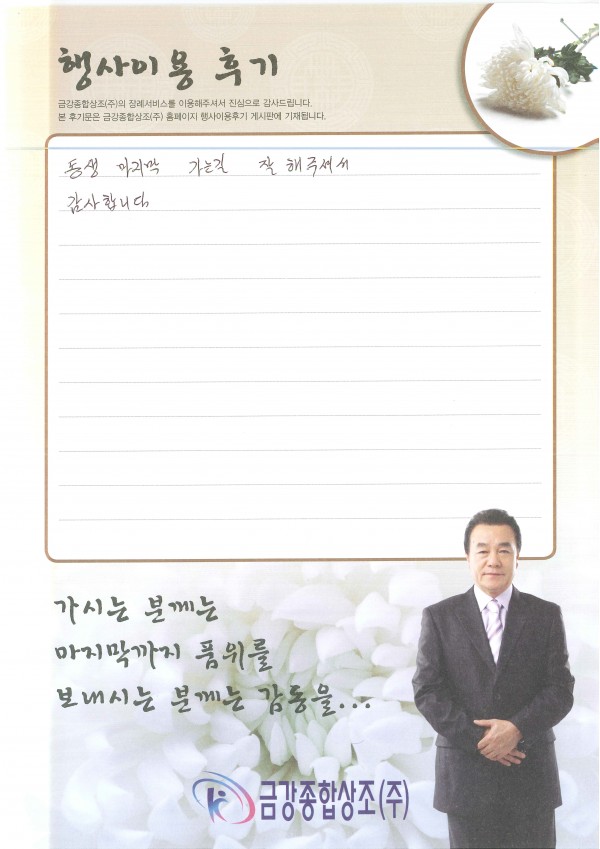 행사이용 후기
금강종합상조(주)의 장례서비스를 이용해주셔서 진심으로 감사드립니다.
본 후기문은 금강종합상조(주) 홈페이지 행사이용후기 게시판에 기재됩니다.
동생 마지막 가는길 잘 해주셔서
감사합니다
가시는 분께는
마지막까지 품위를
보내시는 분께는 감동을...
금강종합상조(주)